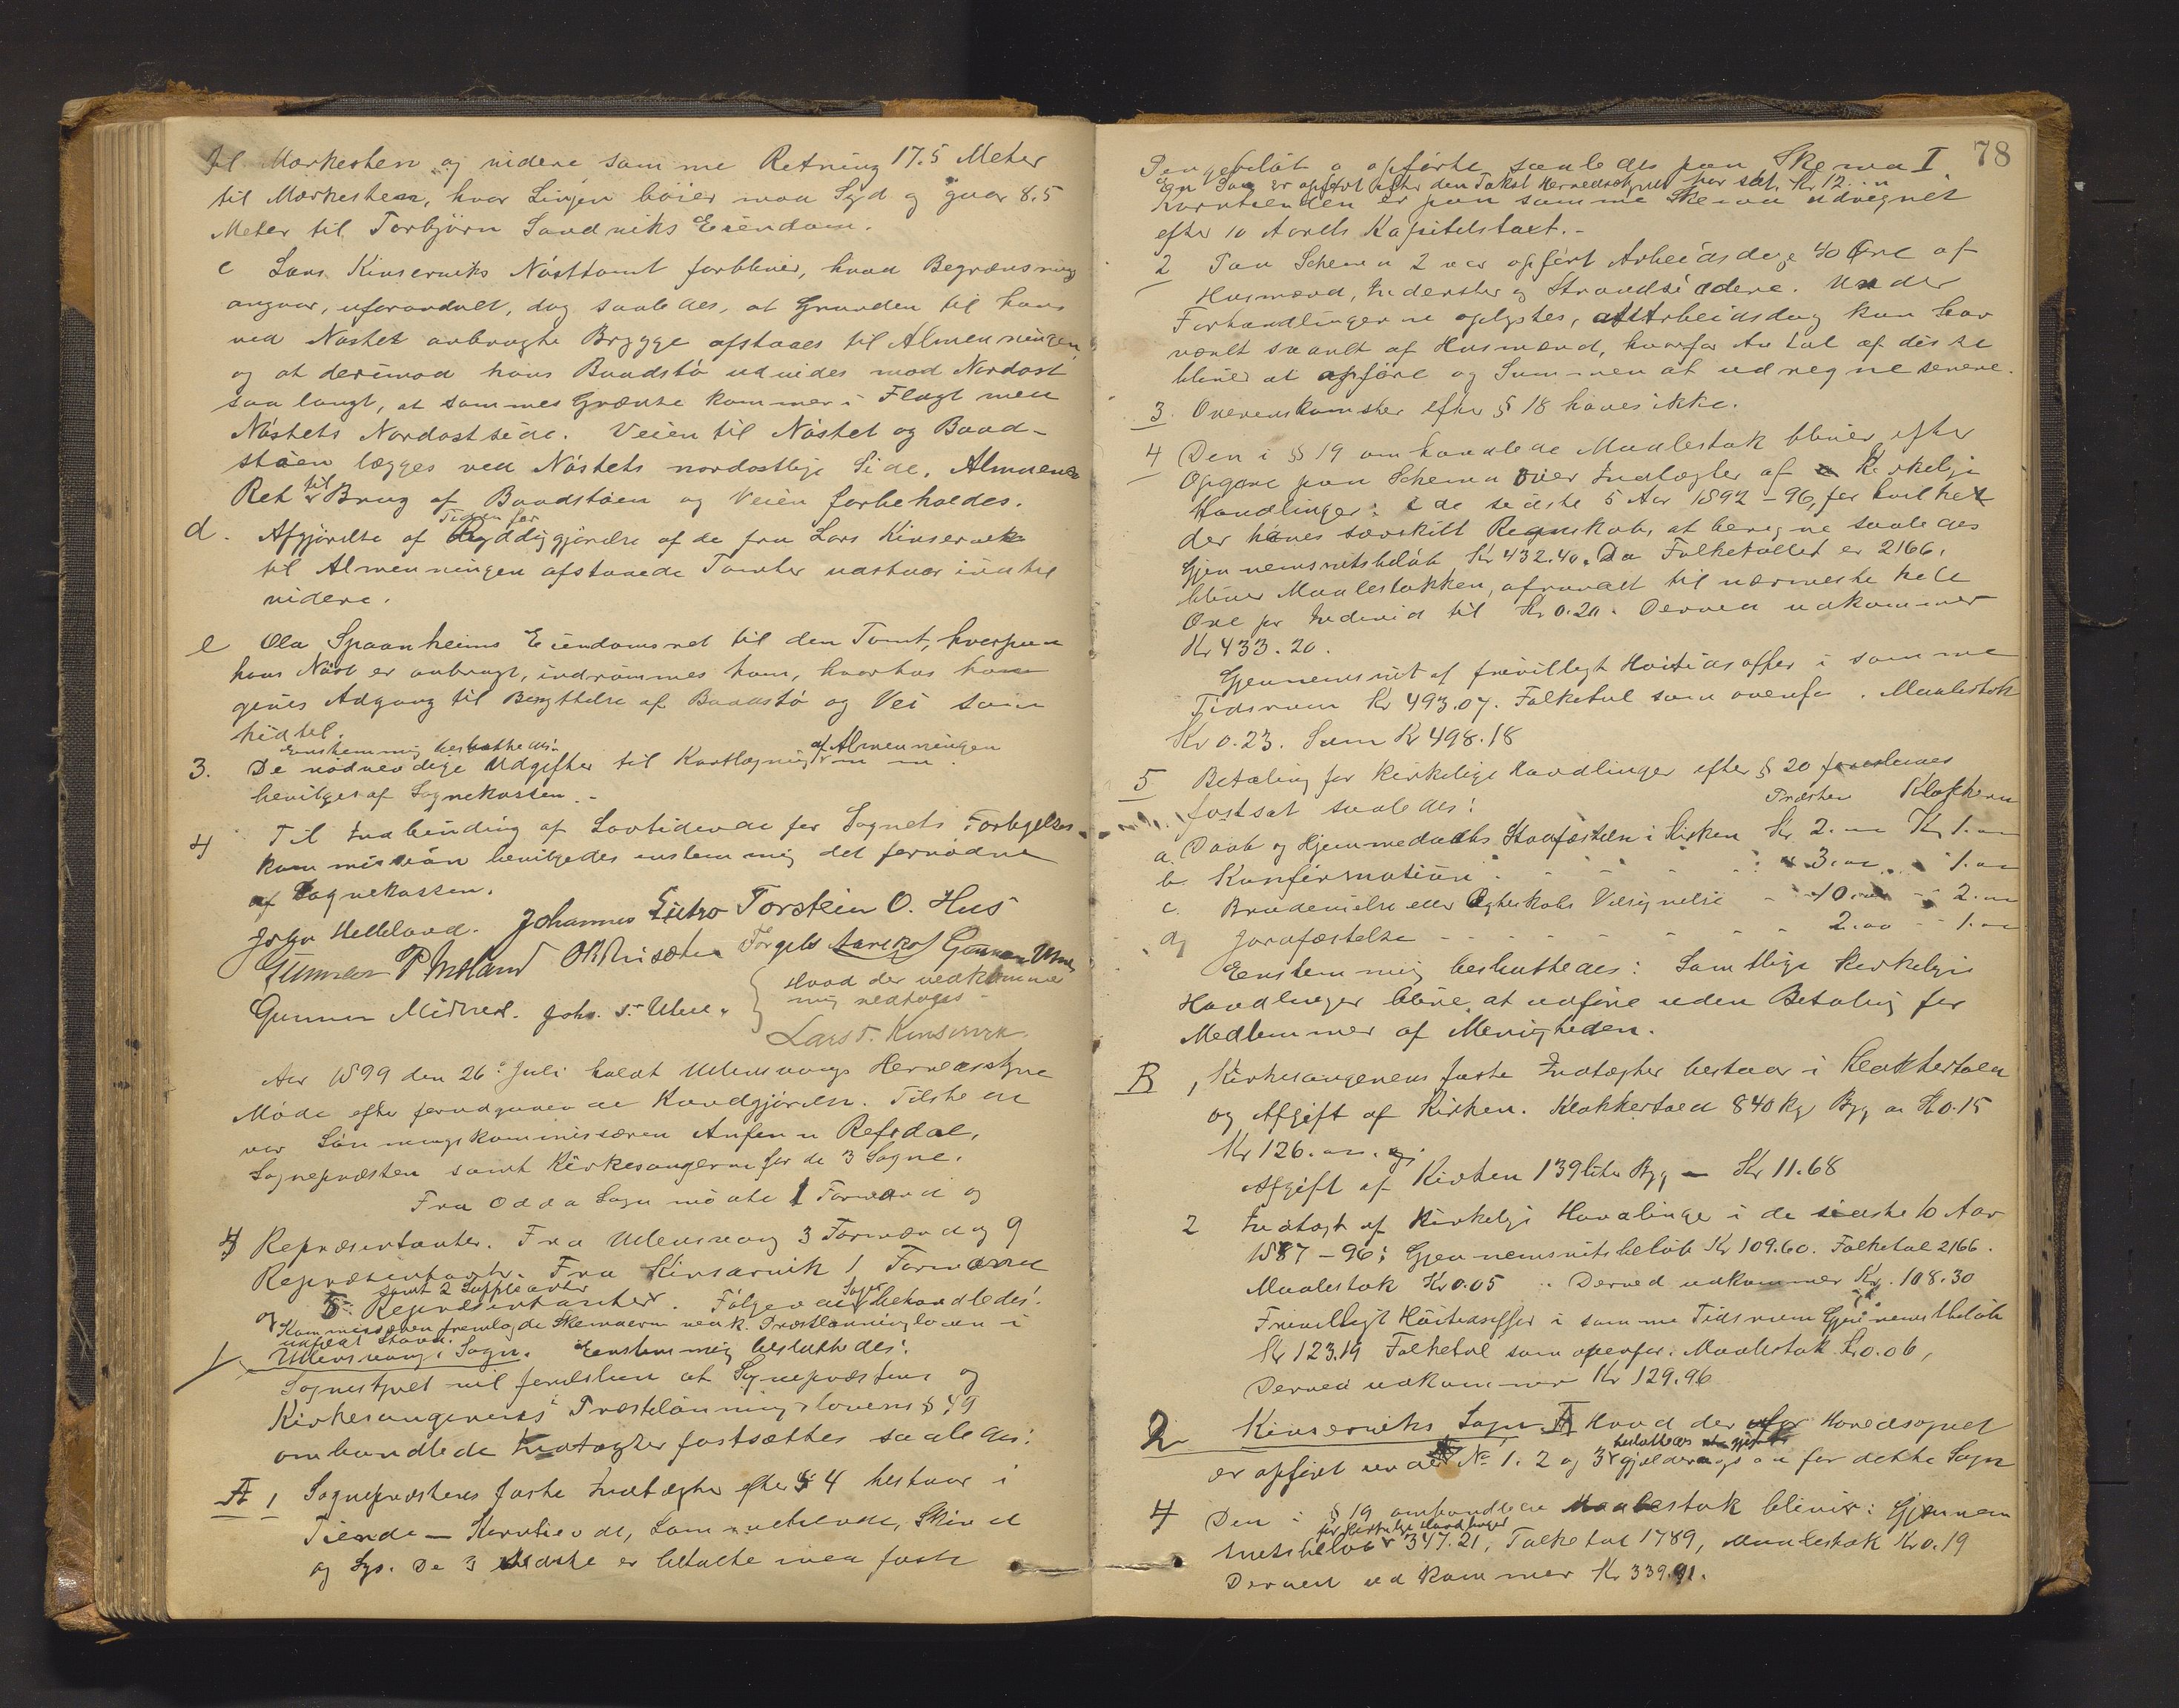 til Mærkesten og videre samme Retning 17.5 Meter
til Mærkesten, hvor Linjen bøier mod Syd og gaar 8.5
Meter til Torbjørn Sandviks Eiendom.
c Lars Kinserviks Nøsttomt forbliver, hvad Begrænsning
angaar, uforandret, dog saaledes, at Grunden til hans
ved Nøstet anbragte Brygge afstaaes til Almenningen,
og at derimod hans Baadstø udvides mod Nordost
saa langt, at sammes Grænse kommer i Flugt med
Nøstets Nordostside. Veien til Nøstet og Baad-
støen lægges ved Nøstets nordostlige Side. Almuens
Ret til Brug af Baadstøen og Veien forbeholdes.
d. Afgjørelse af Tiden for Ryddiggjørelse af de fra Lars Kinservik
til Almenningen afstaaede Tomter udstaar indtil
videre.
e Ola Spaanheims Eiendomsret til den Tomt, hvorpaa
hans Nøst er anbragt, indrømmes ham, hvorhos ham
gives Adgang til Benyttelse af Baadstø og Vei som
hidtil.
Enstemmig besluttedes:
3. De nødvendige Udgifter til Kartlægning af Almenningen
bevilges af Sognekassen. -
4 Til Indbinding af Lovtidende for Sognets Forligelses-
kommission bevilgedes enstemmig det fornødne
af Sognekassen.
John Helleland. Johannes Eitro Torstein O. Hus
Gunnar P Midnæs. Johs. S. Utne.
Hvad der vedkommer
mig vedtages -
Lars T. Kinservik.
Aar 1899 den 26de Juli holdt Ullensvangs Herredsstyre
Møde efter forudgaaende Kundgjørelse. Tilstede
var Lønningskommissæren Anfinn Refsdal,
Sognepræsten samt Kirkesangerne for de 3 Sogne.
Fra Odda Sogn mødte 1 Formand og
4 Repræsentanter. Fra Ullensvang 3 Formænd og 9
Repræsentanter. Fra Kinservik 1 Formand
og 5 Repræsentanter samt 2 Suppleanter. Følgende Sager behandledes:
Kommissæren fremlagde Skemaerne vedk. Præstlønningsloven i
udfyldt Stand.
1 Ullensvangs Sogn. Eenstemmig besluttedes:
Sognestyret vil foreslaa at Sognepræstens og
Kirkesangerens i Præstelønningslovens § 49
omhandlede Indtægter fastsættes saaledes:
A 1 Sognepræstens faste Indtægter efter § 4 bestaar i
Tiende - Korntiende, Skind
og Lys. De 3 sidste er betalte med faste
78
Pengebeløb o opførte saaledes paa Skema I
En Sag er opført efter den Takst Herredsstyret har sat, Kr 12.
Korntienden er paa samme Skema udregnet
efter 10 Aarets Kapitelstaxt. -
2 Paa Schema 2 var opført Arbeidsdage 40 Øre af
Husmænd, Inderster og Strandsiddere. Under
Forhandlingerne oplystes, at Arbeidsdag kun har
været svaret af Husmænd, hvorfor Antal af disse
bliver at opføre og Summen at udregne senere.
3. Overenskomster efter § 18 haves ikke.
4 Den i § 19 omhandlede Maalestok bliver efter
Opgave paa Schema over Indtægter af Kirkelige
Handlinger i de sidste 5 Aar 1892 - 96, for hvilket
der haves særskilt Regnskab, at beregne saaledes
Gjennemsnitsbeløb Kr 432.40. Da Folketallet er 2166,
bliver Maalestokken, afrundet til nærmeste hele
Øre pr Individ til Kr 0.20. Derved udkommer
Kr 433.20.
Gjennemsnit af frivilligt Høitidsoffer i samme
Tidsrum Kr 493.07. Folketal som ovenfor. Maalestok
Kr 0.23. Sum Kr 498.18
5 Betaling for kirkelige Handlinger efter § 20 foreslaaes
fastsat saaledes:
Præsten Klokkeren
a. Daab og Hjemmedaabs Stadfæstelse i Kirken Kr 2.00 Kr 1.00
b. Konfirmation - - - - - " 3.00 - " 1.00
c. Brudevielse eller Ægteskabs Velsignelse - - 10.00 - - 2.00
d Jordfæstelse - - - - - - - 2.00 - 1.00
Eenstemmig besluttedes: Samtlige kirkelige
Handlinger blive at udføre uden Betaling for
Medlemmer af Menigheden.
B 1 Kirkesangerens faste Indtægter bestaar i Klokkertold
og Afgift af Kirken. Klokkertold 840 kg Byg a Kr 0.15
Kr 126.00.
Afgift af Kirken 139 liter Byg - Kr 11.68
2 Indtægt af Kirkelige Handlinger i de sidste 10 Aar
1887 - 96: Gjennemsnitsbeløb Kr 109.60. Folketal 2166.
Maalestok Kr 0.05 .. Derved udkommer Kr. 108.30
Frivilligt Høitidsoffer i samme Tidsrum Gjennemsnitsbeløb
Kr 123.19 Folketal som ovenfor. Maalestok Kr 0.06,
Derved udkommer Kr 129.96
2 Kinserviks Sogn A Hvad der for Hovedsognet
er opført under No 1. 2 og 3 besluttedes gjældende ogsaa for dette Sogn
4 Den i § 19 omhandlede Maalestok bliver: Gjennem
snitsbeløb for kirkelige Handlinger 347.21, Folketal 1789, Maalestok Kr 0.19
Derved udkommer Kr 339.91.